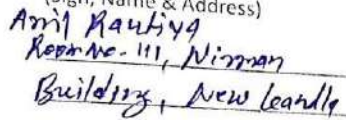 (Sign, Name & Address)
Anil Rautiya
Room No. - 111, Nirman
Building, New